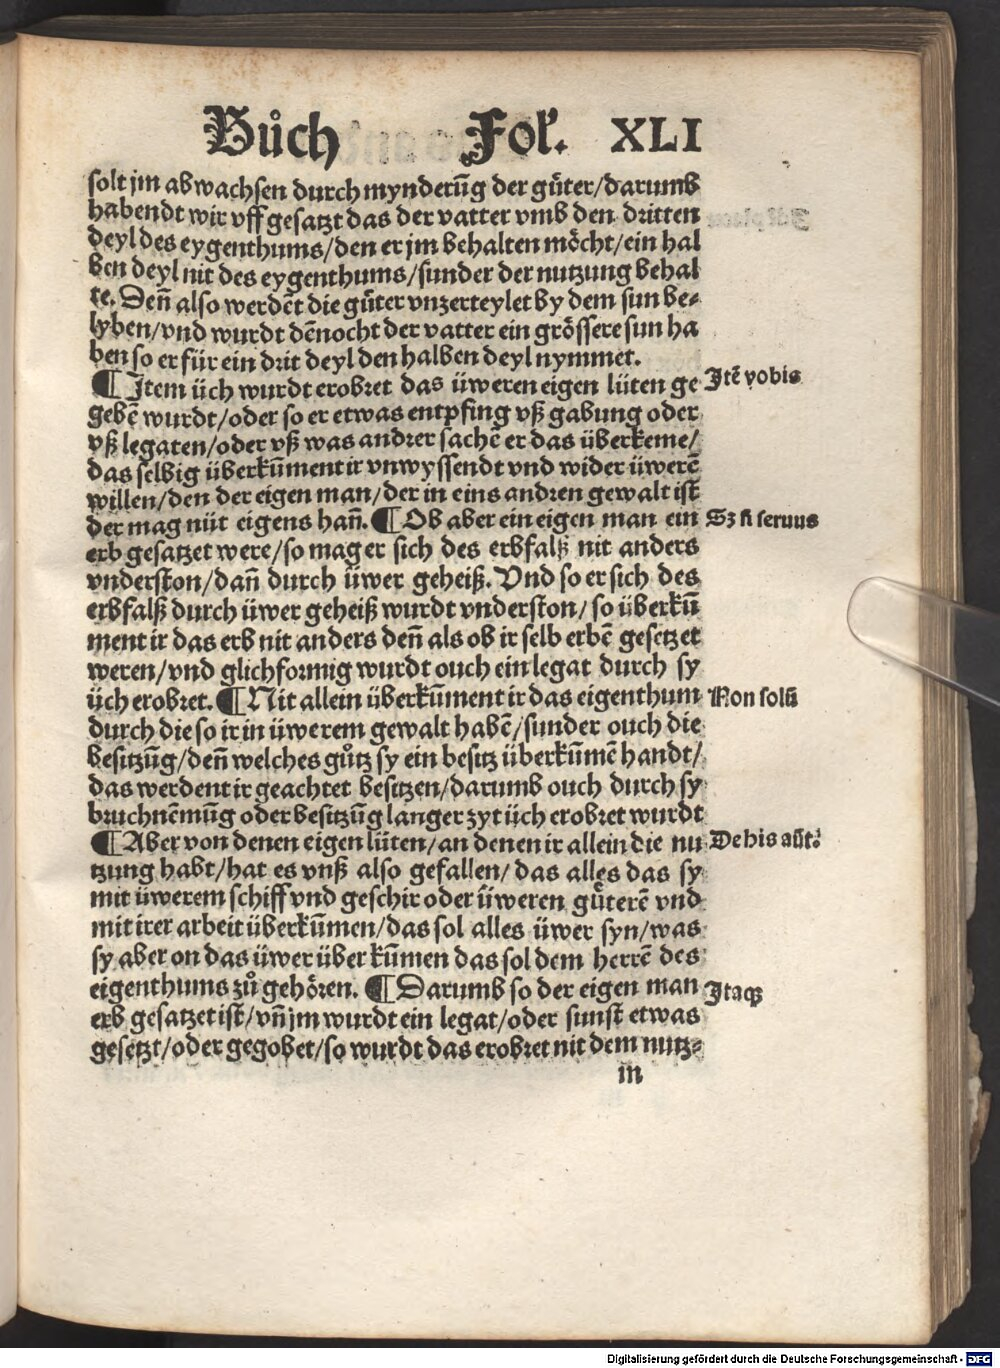 Bůch Fol. XLI
solt jm abwachsen durch mynderūg der gůter/darumb
habendt wir vff gesatzt das der vatter vmb den dritten
deyl des eygenthums/den er jm behalten möcht/ein hal
ben deyl nit des eygenthums/sunder der nutzung behal
te. Deñ also werdēt die gůter vnzerteylet by dem sun be⸗
lyben/vnd wurdt dēnocht der vatter ein grössere sun ha
ben so er für ein drit deyl den halben deyl nymmet.
¶ Item üch wurdt erobret das üweren eigen lüten ge
Itē vobis
gebē wurdt/oder so er etwas entpfing vß gabung oder
vß legaten/oder vß was andrer sachē er das überkeme/
das selbig überkūment ir vnwyssendt vnd wider üwerē
willen/den der eigen man/der in eins andren gewalt ist
der mag nüt eigens hañ. ¶ Ob aber ein eigen man ein
Sz si seruus
erb gesatzet were/so mag er sich des erbfalß nit anders
vnderston/dañ durch üwer geheiß. Vnd so er sich des
erbfalß durch üwer geheiß wurdt vnderston/ so überkū
ment ir das erb nit anders deñ als ob ir selb erbē gesetzet
weren/vnd glichformig wurdt ouch ein legat durch sy
üch erobret. ¶ Nit allein überkūment ir das eigenthum
Non solū
durch die so ir in üwerem gewalt habē/sunder ouch die
besitzūg/deñ welches gůtz sy ein besitz überkūmē handt/
das werdent ir geachtet besitzen/darumb ouch durch sy
bruchnēmūg oder besitzūg langer zyt üch erobret wurdt
¶ Aber von denen eigen lüten/an denen ir allein die nu
De his aūt.
tzung habt/hat es vnß also gefallen/das alles das sy
mit üwerem schiff vnd geschir oder üweren gůterē vnd
mit irer arbeit überkūmen/das sol alles üwer syn/was
sy aber on das üwer überkūmen das sol dem herrē des
eigenthums zů gehören. ¶ Darumb so der eigen man
Itaqꝫ
erb gesatzet ist/vñ jm wurdt ein legat/oder sunst etwas
gesetzt/oder gegobet/so wurdt das erobret nit dem nutz⸗
in
Digitalisierung gefördert durch die Deutsche Forschungsgemeinschaft - DFG